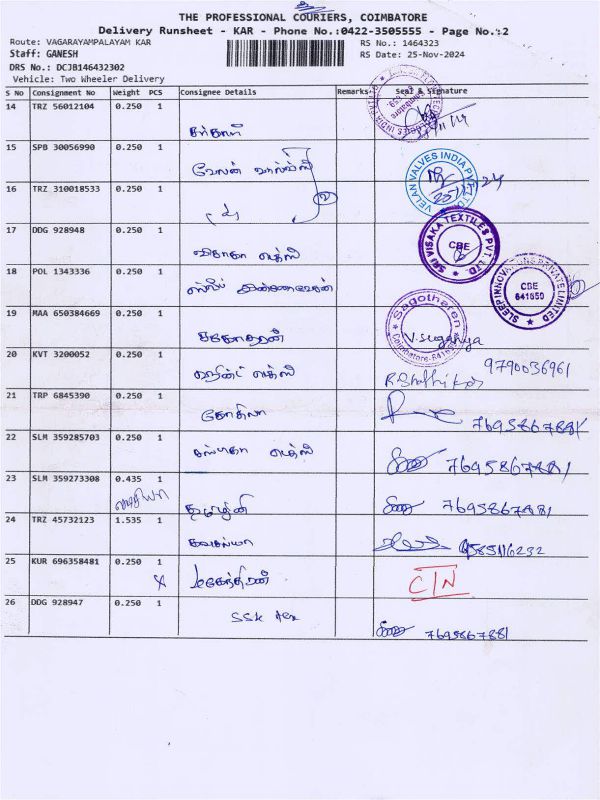 THE PROFESSIONAL COURIERS, COIMBATORE
Delivery Runsheet - KAR - Phone No.:0422-3505555 - Page No.:2
Route: VAGARAYAMPALAYAM KAR
Staff: GANESH
DRS No.: DCJB146432302
Vehicle: Two Wheeler Delivery
RS No.: 1464323
RS Date: 25-Nov-2024
S No Consignment No Weight PCS Consignee Details Remarks Seal & Signature
14 TRZ 56012104 0.250 1
15 SPB 30056990 0.250 1
வேலன் வால்வ்ஸ்
VELAN VALVES INDIA PVT. LTD
16 TRZ 310018533 0.250 1
17 DDG 928948 0.250 1
விசாகா டெக்ஸ்
SRI VISAKA TEXTILES PVT. LTD.
CBE
18 POL 1343336 0.250 1
ஸ்லீப் இன்னோவேசன்
SLEEP INNOVATIONS PRIVATE LIMITED
CBE
641659
19 MAA 650384669 0.250 1
சகோதரன்
Sagotharen
Coimbatore-641659
V. Suganya
20 KVT 3200052 0.250 1
9790036961
21 TRP 6845390 0.250 1
கோகிலா
7695867881
22 SLM 359285703 0.250 1
7695867881
23 SLM 359273308 0.435 1
7695867881
24 TRZ 45732123 1.535 1
கவசல்யா
9585116232
25 KUR 696358481 0.250 1
X மகேந்திரன்
C/N
26 DDG 928947 0.250 1
SSK Tex
7695867881